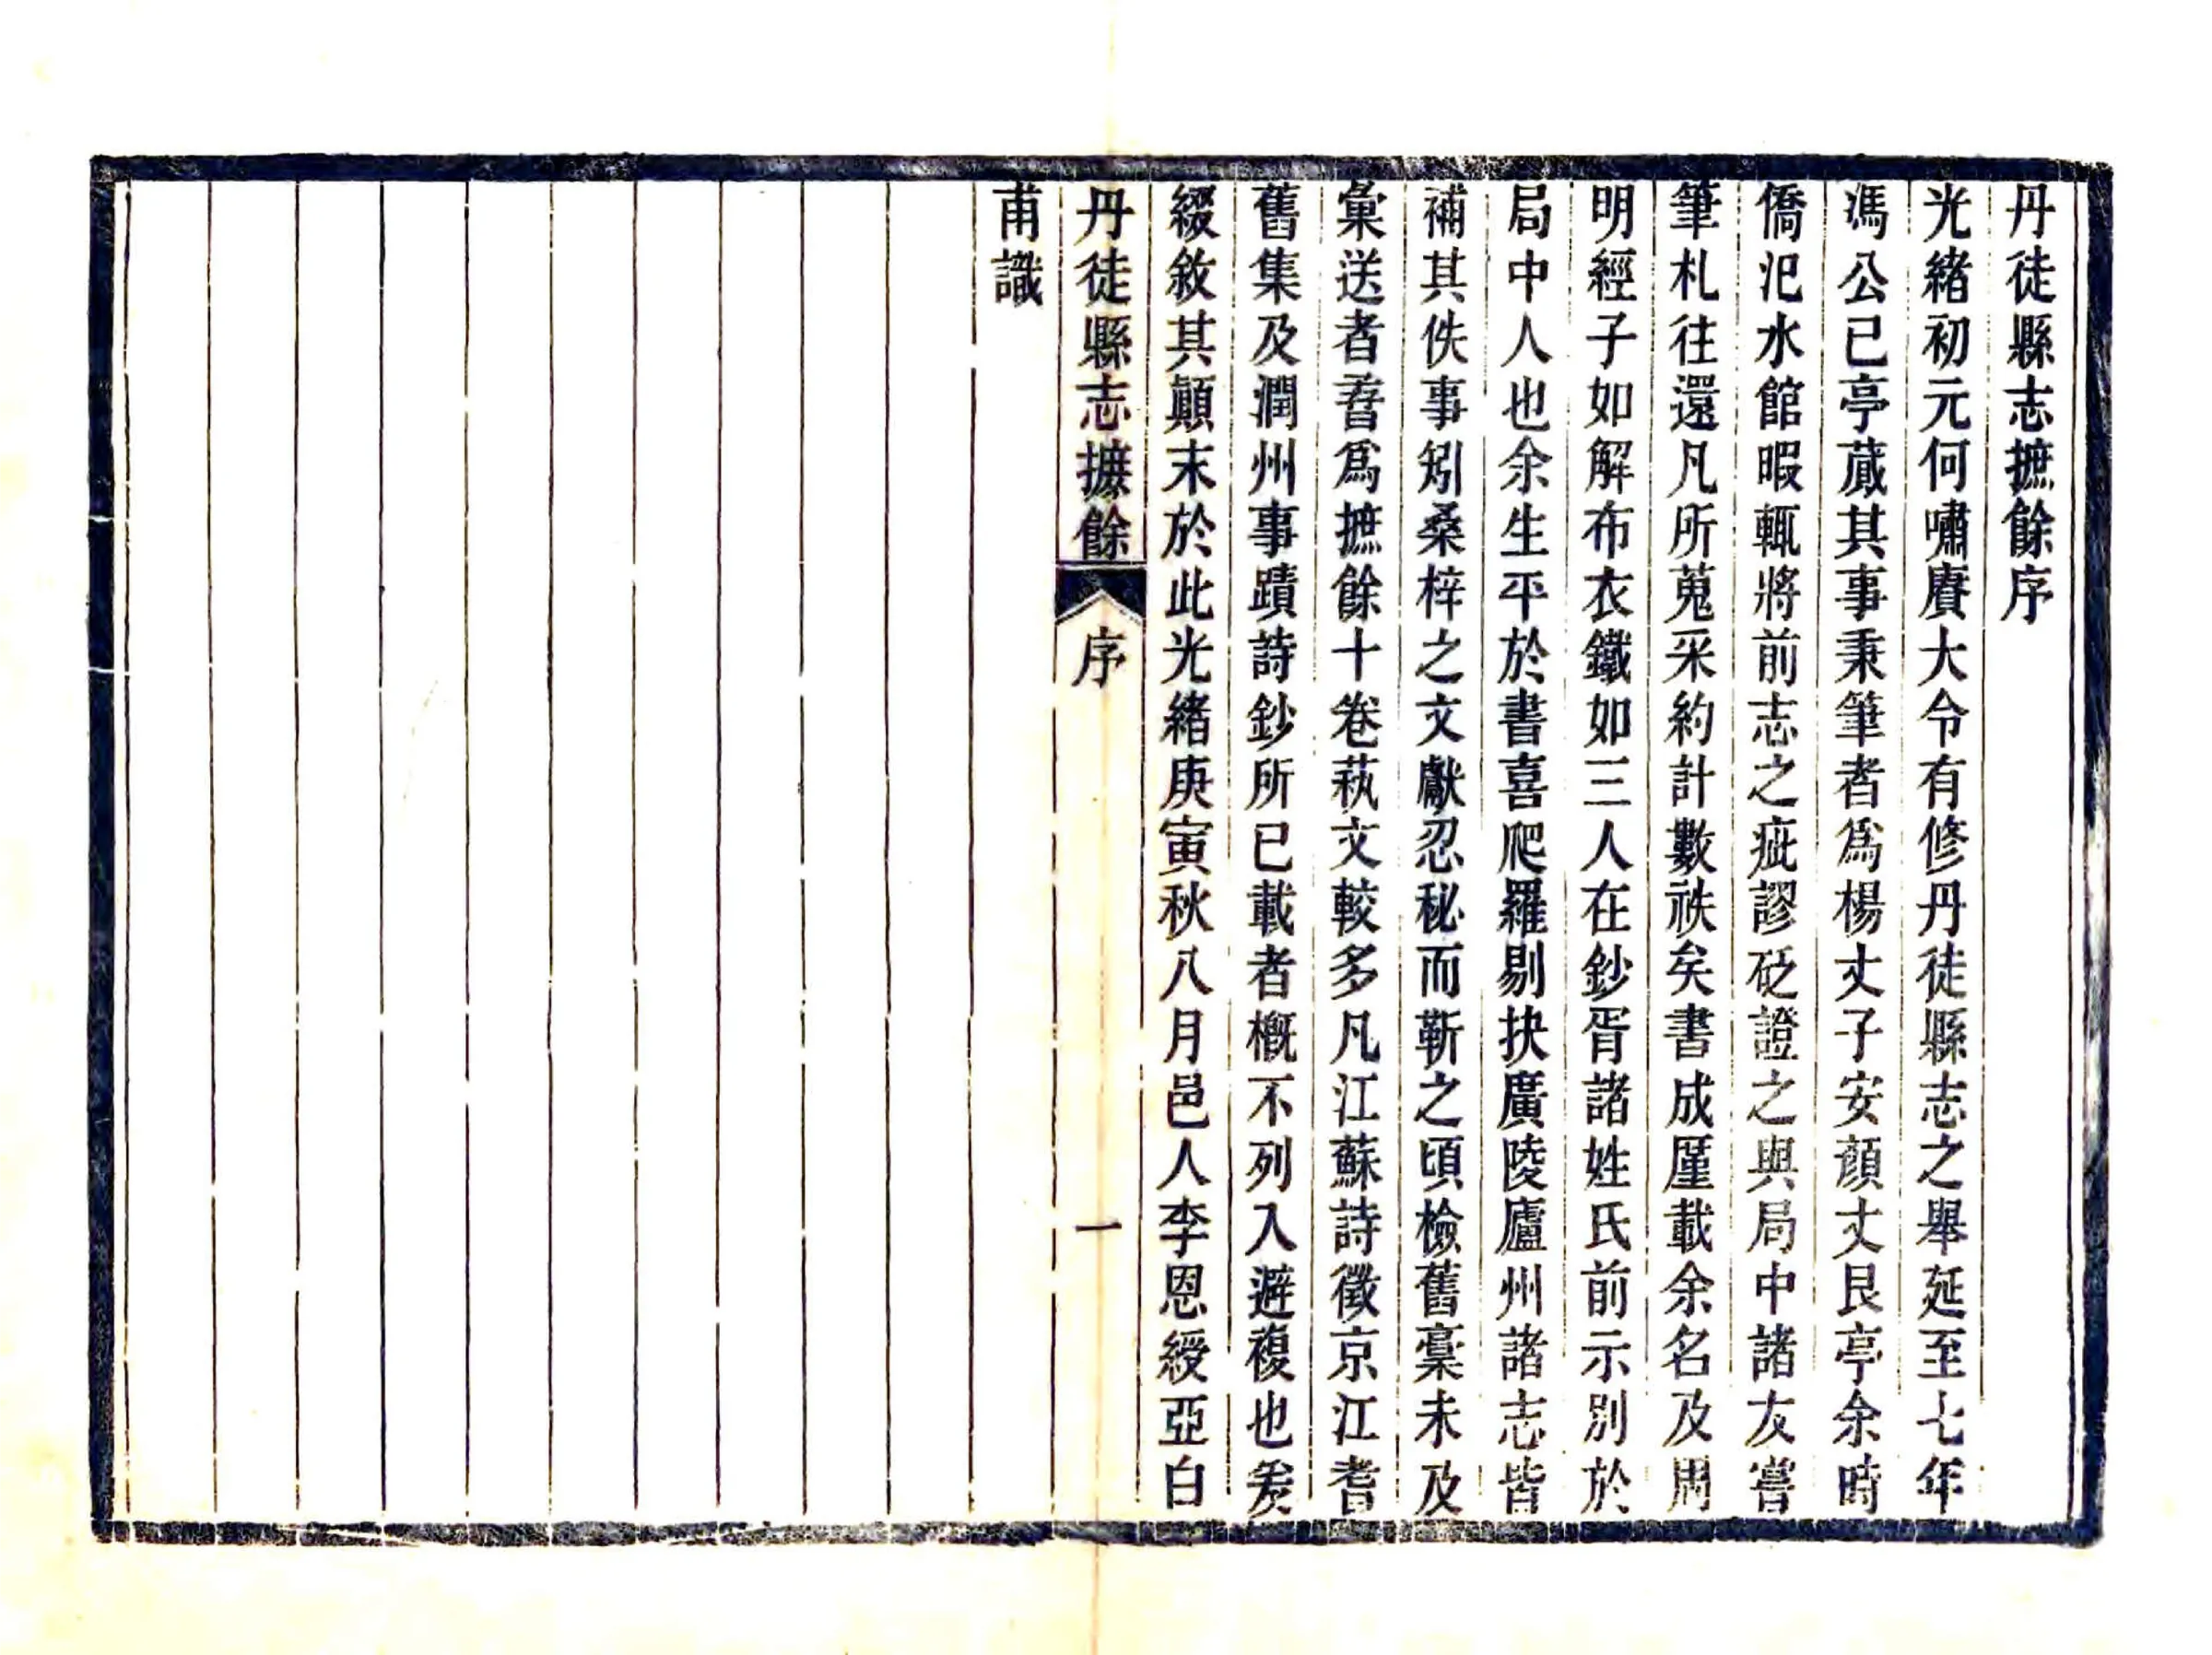 丹徒縣志摭餘序
光緒初元何嘯賡大令有修丹徒縣志之舉延至七年
馮公已亭蕆其事秉筆者爲楊丈子安顏丈艮亭余時
僑汜水館暇輒將前志之疵謬砭證之與局中諸友嘗
筆札往還凡所蒐采約計數袟矣書成厪載余名及周
明經子如解布衣鐵如三人在鈔胥諸姓氏前示別於
局中人也余生平於書喜爬羅剔抉廣陵廬州諸志皆
補其佚事矧桑梓之文獻忍秘而靳之頃檢舊稾未及
彙送者萅爲摭餘十卷蓺文較多凡江蘇詩徵京江耆
舊集及潤州事蹟詩鈔所已載者槪不列入避複也爰
綴敘其顚末於此光緒庚寅秋八月邑人李恩綬亞白
丹徒縣志摭餘 序 一
甫識